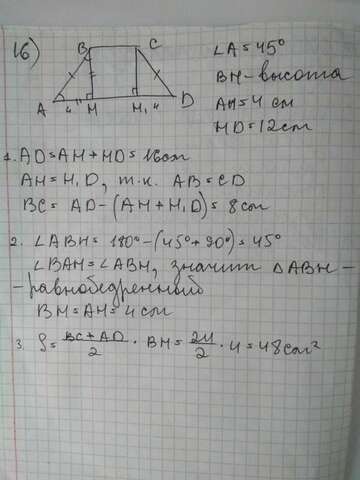 16)
B C
A 4 H H₁ 4 D
∠A = 45°
BH - высота
AH = 4 см
HD = 12 см
1. AD = AH + HD = 16 см
AH = H₁D, т.к. AB = CD
BC = AD - (AH + H₁D) = 8 см
2. ∠ABH = 180° - (45° + 90°) = 45°
∠BAH = ∠ABH, значит △ABH -
- равнобедренный
BH = AH = 4 см
3. S = BC + AD / 2 · BH = 24 / 2 · 4 = 48 см²